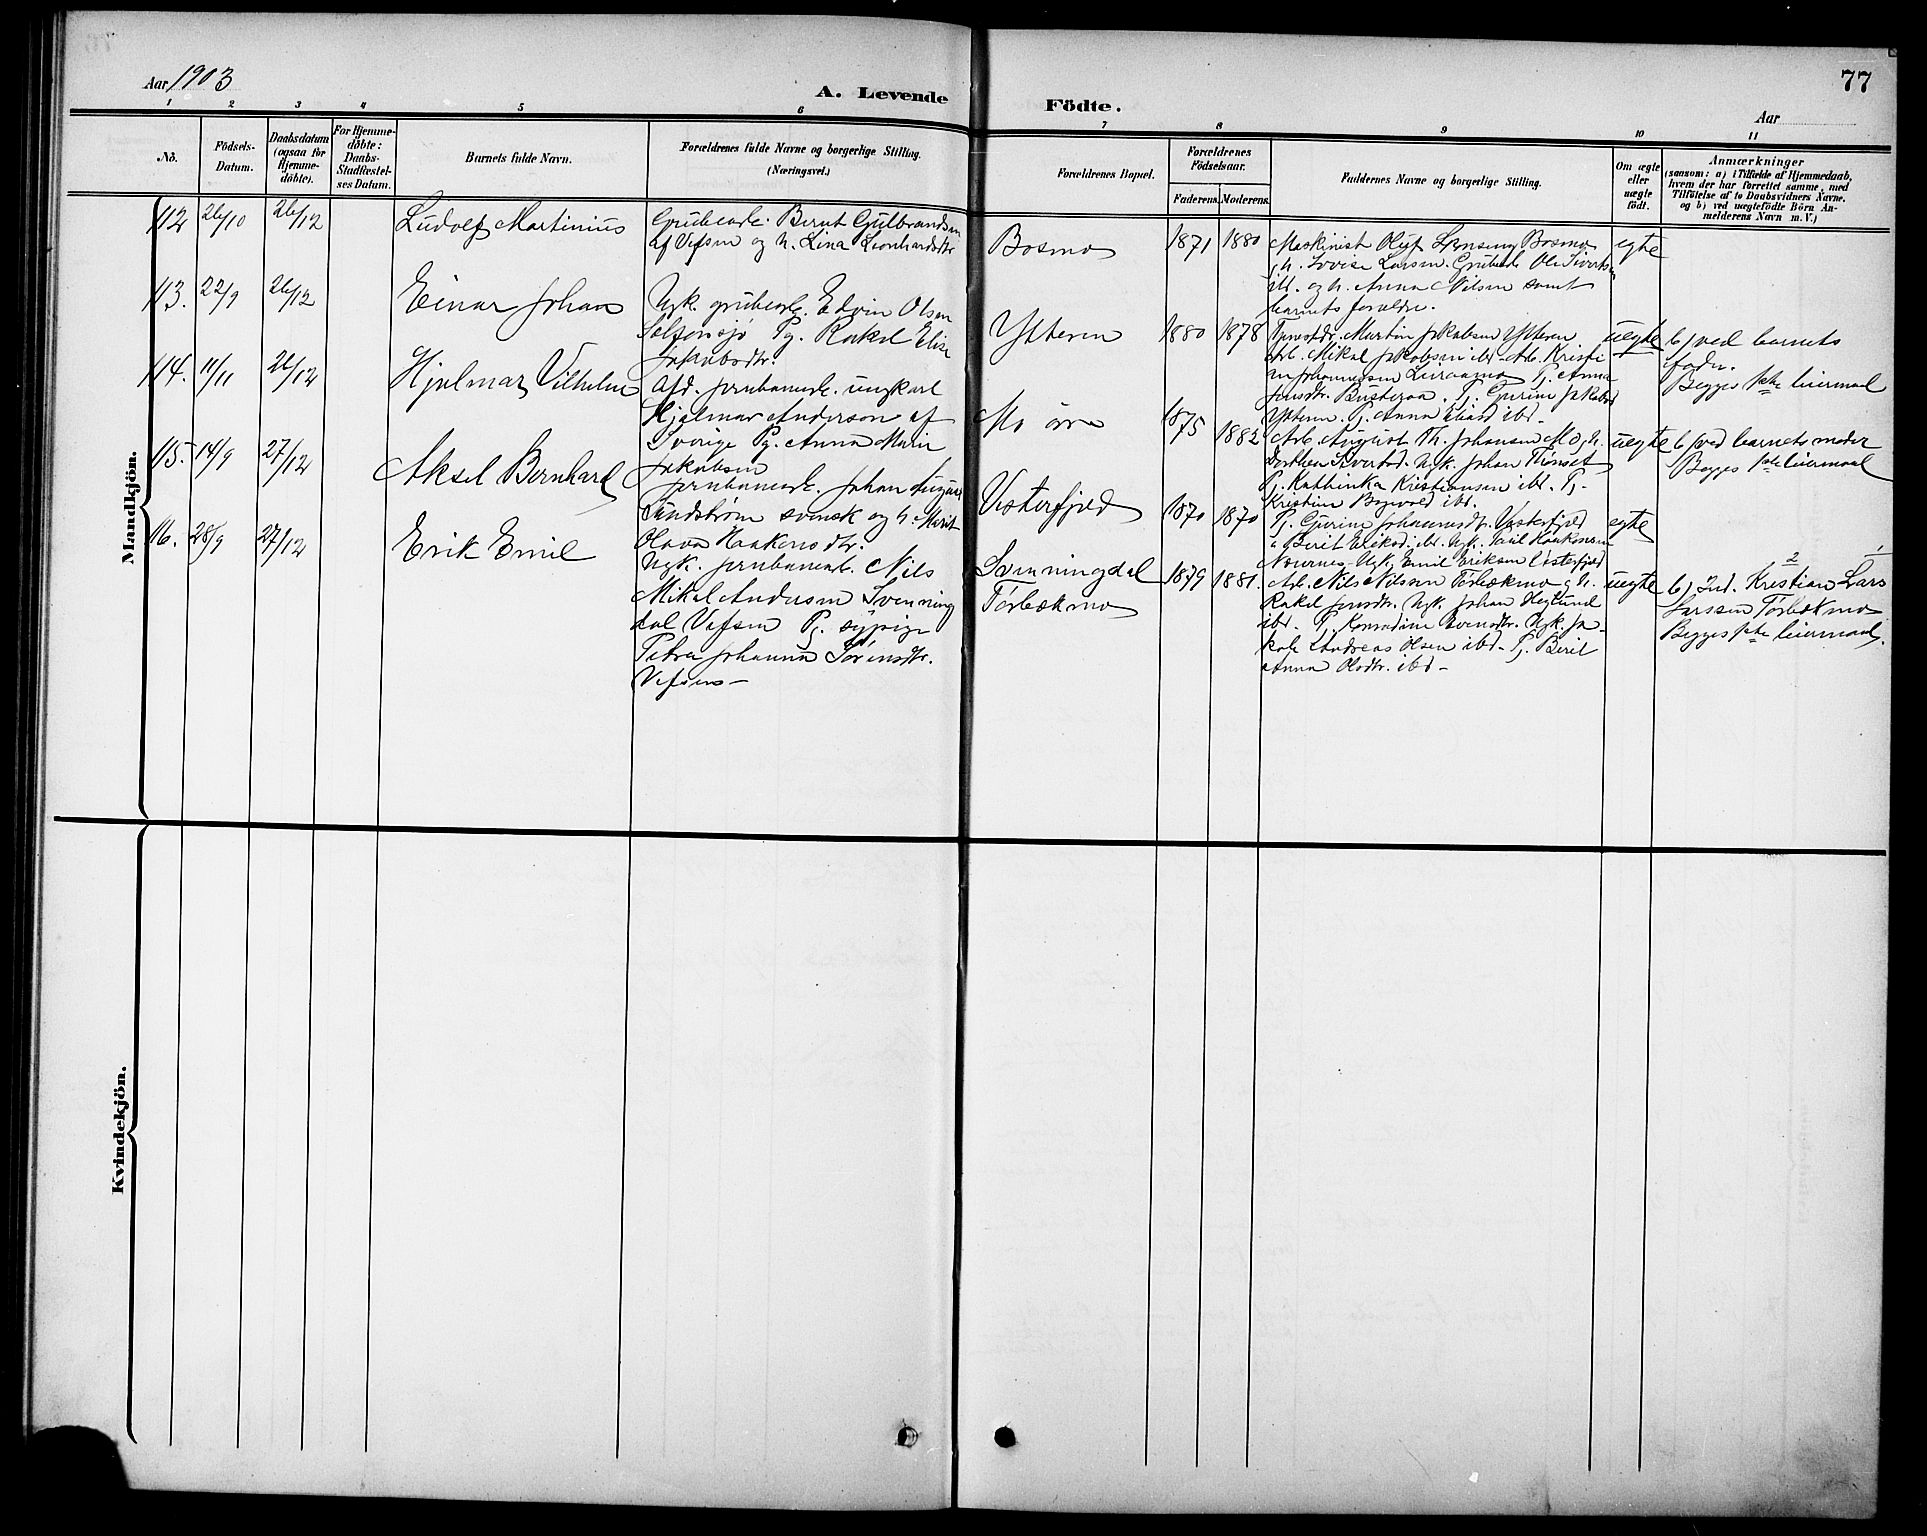 77
Aar 1903
A. Levende Födte.
Aar
1 2 3 4 5 6 7 8 9 10 11
No.
Födsels-
Datum.
Daabsdatum
(ogsaa for
Hjemme-
døbte).
For Hjemme-
døbte:
Daabs-
Stadfæstel-
ses Datum.
Barnets fulde Navn.
Forældrenes fulde Navne og borgerlige Stilling.
(Næringsvei.)
Forældrenes Bopæl.
Forældrenes
Födselsaar.
Faderens. Moderens.
Faddernes Navne og borgerlige Stilling.
Om ægte
eller
uægte
födt.
Anmærkninger
(saasom: a) i Tilfælde af Hjemmedaab,
hvem der har forrettet samme, med
Tilföielse af to Daabsvidners Navne.
og b) ved uægtefödte Börn An-
melderens Navn m. V.)
Mandkjön.
112 26/10 26/12
Ludolf Martinius
Grubearb. Bernt Gulbrandsen
af Vefsen og h. Lina Leonhardsdtr
Bosmo
1871 1880
Maskinist Oluf Bosmo
og h. Lovise Larsen. Grubearb. Ole Sivertsen
ibd. og h. Anna Nilsen samt
barnets forældre.
egte
113. 22/9 26/12
Einar Johan
Ugk. grubearb. Edvin Olsen
Pg. Rakel Elise
Jakobsdtr.
Ytteren
1880 1878
Martin Jakobsen Ytteren
Arb. Mikal Jakobsen ibd. Arb. Kristi
an Johannessen Leiraamo Pg. Anna
Jensdtr. Pg. Gurine Jakobsd
Ytteren. Pg. Anna ibd.
uegte
b) ved barnets
fader.
Begges 1ste leiermaal
114. 11/11 26/12
Hjalmar Vilhelm
Afd. jernbanearb. ungkarl
Hjalmar Anderson af
Sverige Pg. Anna Marie
Jakobsen
Mo øvre
1875 1882
Arb. August Th. Johansen Mo og h.
Dorthea Sivertsd. Ugk. Johan
Pg. Kathinka Kristiansen ibd. Pg.
Kristine ibd.
uegte
b) ved barnets moder
Begges 1ste leiermaal
115. 14/9 27/12
Aksel Bernhard
Jernbanearb. Johan August
Sundstrøm svensk og h. Marit
Olava Haakensdtr.
Vesterfjeld
1870 1870
Pg. Gurine Johannesdtr. Vesterfjeld
Berit Eriksd. ibd. Ugk. Paul Haakensen
Ugk. Emil Eriksen Vesterfjeld
egte
116. 28/9 27/12
Erik Emil
Ugk. jernbanearb. Nils
Mikal Andersen Svenning
dal Vefsen Pg. sypige
Petra Johanna Sørensdtr.
Vefsen –
Svenningdal
Torbækmo
1879 1881.
Arb. Nils Nilssen Torbækmo og h.
Rakel Jensdtr. Ugk. Johan Heglund
ibd. Pg. Konradine Svensdtr. Ugk. Ja-
kob Andreas Olsen ibd – Pg. Berit
Anna Olsdtr. ibd –
uegte
2 1
b) Ind. Kristian Lars
Larssen Torbækmo
Begges 1ste leiermaal.
Kvindekjön.